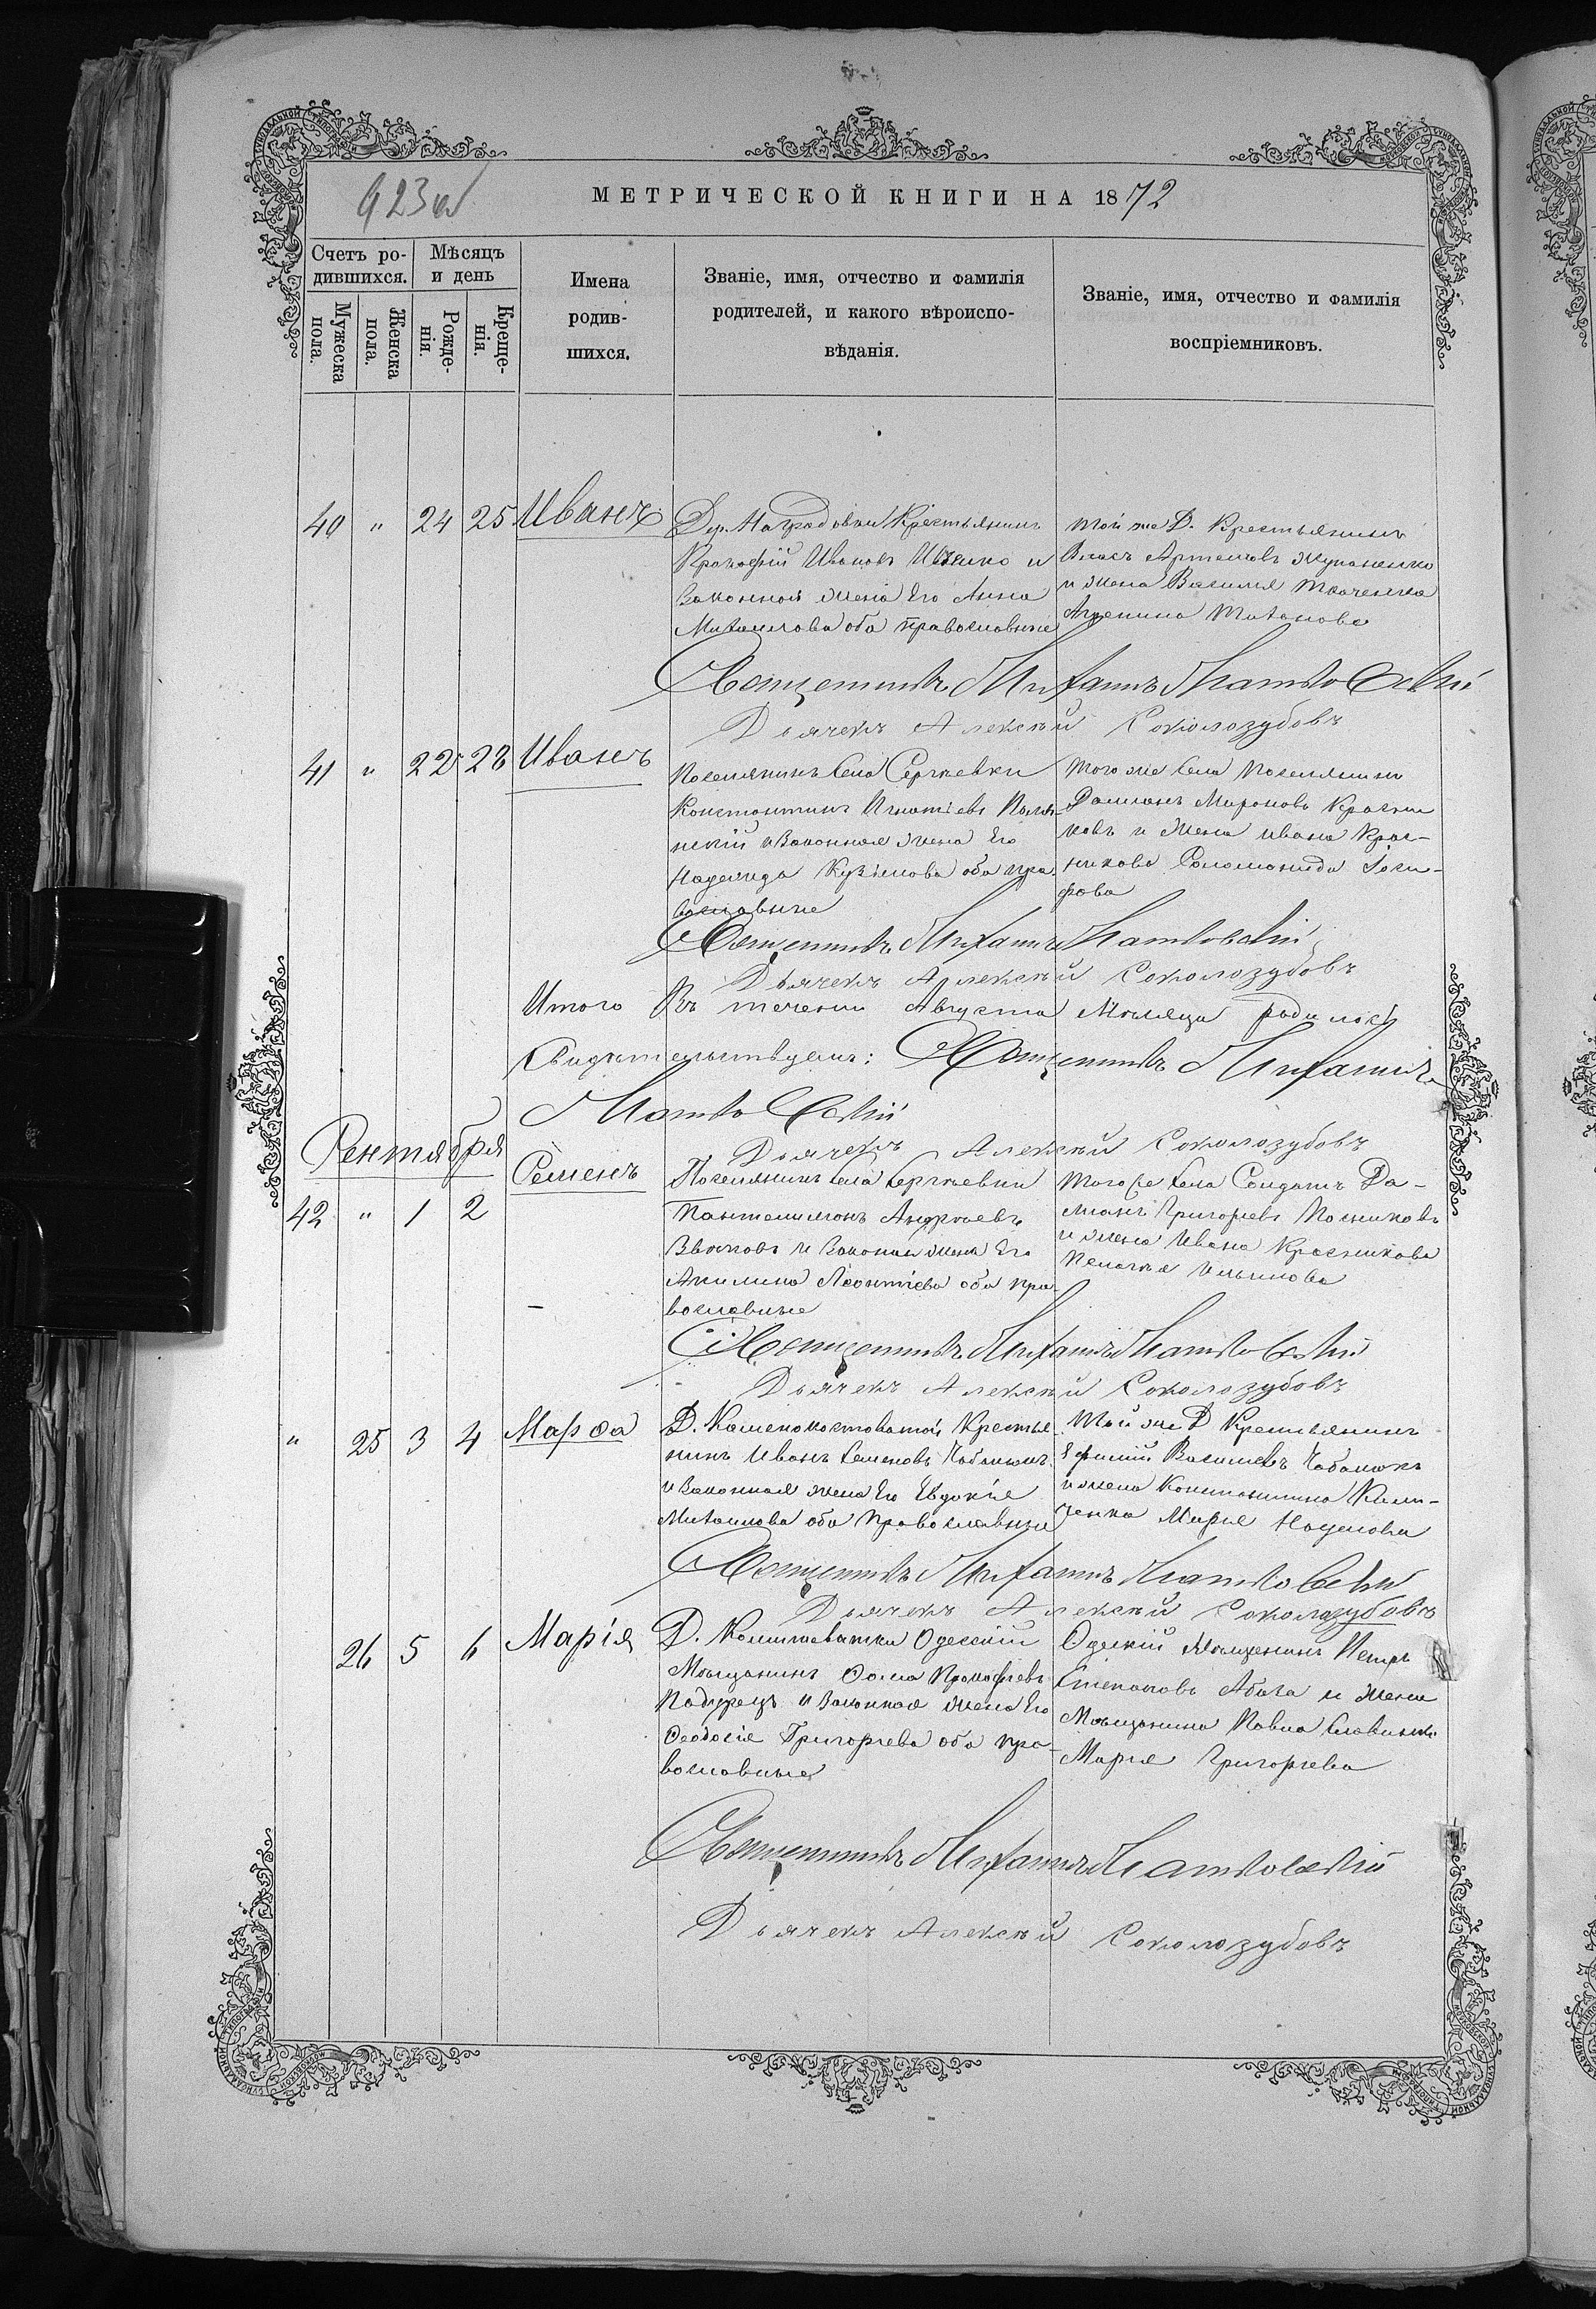 423об
МЕТРИЧЕСКОЙ КНИГИ НА 1872
Счетъ ро-
дившихся.
Мужеска
пола.
Женска
пола.
Мѣсяцъ
и день
Рожде-
нія.
Креще-
нія.
Имена
родив-
шихся.
Званіе, имя, отчество и фамилія
родителей, и какого вѣроиспо-
вѣданія.
Званіе, имя, отчество и фамилія
воспріемниковъ.
40 " 24 25 Иванъ
Дер. Крестьянинъ
Прокофій Ивановъ и
Законная жена Его Анна
Михаилова оба православные
той же Д. Крестьянинъ
Власъ Артемовъ Жупаненко
и жена Василія Ткаченка
Священникъ Михаилъ
Дьячекъ Алексѣй Соколозубовъ
41 " 22 28 Иванъ
Поселянинъ Села Сергѣевки
Константинъ Игнатіевъ
и Законная жена Его
Надежда Кузьмова оба пра-
вославные
того же Села Поселянинъ
Даміанъ Мироновъ Красни
ковъ и жена Ивана Крас-
никова Соломонида Іоси-
фова
Священникъ Михаилъ
Дьячекъ Алексѣй Соколозубовъ
Итого Въ теченіи Августа Мѣсяца родилось
Свидѣтельствуемъ: Священникъ Михаилъ
Дьячекъ Алексѣй Соколозубовъ
Сентября
42 " 1 2 Семенъ
Поселянинъ Села Сергѣевки
Пантелимонъ Андреевъ
и Законная жена Его
Акилина Леонтіева оба пра-
вославные
того же Села Солдатъ Да-
міанъ Григорьевъ
и жена Ивана Красникова
Пелагея
Священникъ Михаилъ
Дьячекъ Алексѣй Соколозубовъ
" 25 3 4 Марѳа
Д. Каменокостоватой Крестья
нинъ Иванъ Семеновъ Чабанюкъ
и Законная жена Его Евдокія
Михаилова оба православные
Той же Д Крестьянинъ
Ефимій Василіевъ Чабанюкъ
и жена Константина Кили-
ченка Марія
Священникъ Михаилъ
Дьячекъ Алексѣй Соколозубовъ
26 5 6 Марія
Д. Одескій
Мѣщанинъ Ѳома Прокофіевъ
и Законная жена Его
Ѳеодосія Григорьева оба пра-
вославные
Одескій Мѣщанинъ Петръ
Степановъ Абаза и жена
Мѣщанина Павла
Марія Григорьева
Священникъ Михаилъ
Дьячекъ Алексѣй Соколозубовъ